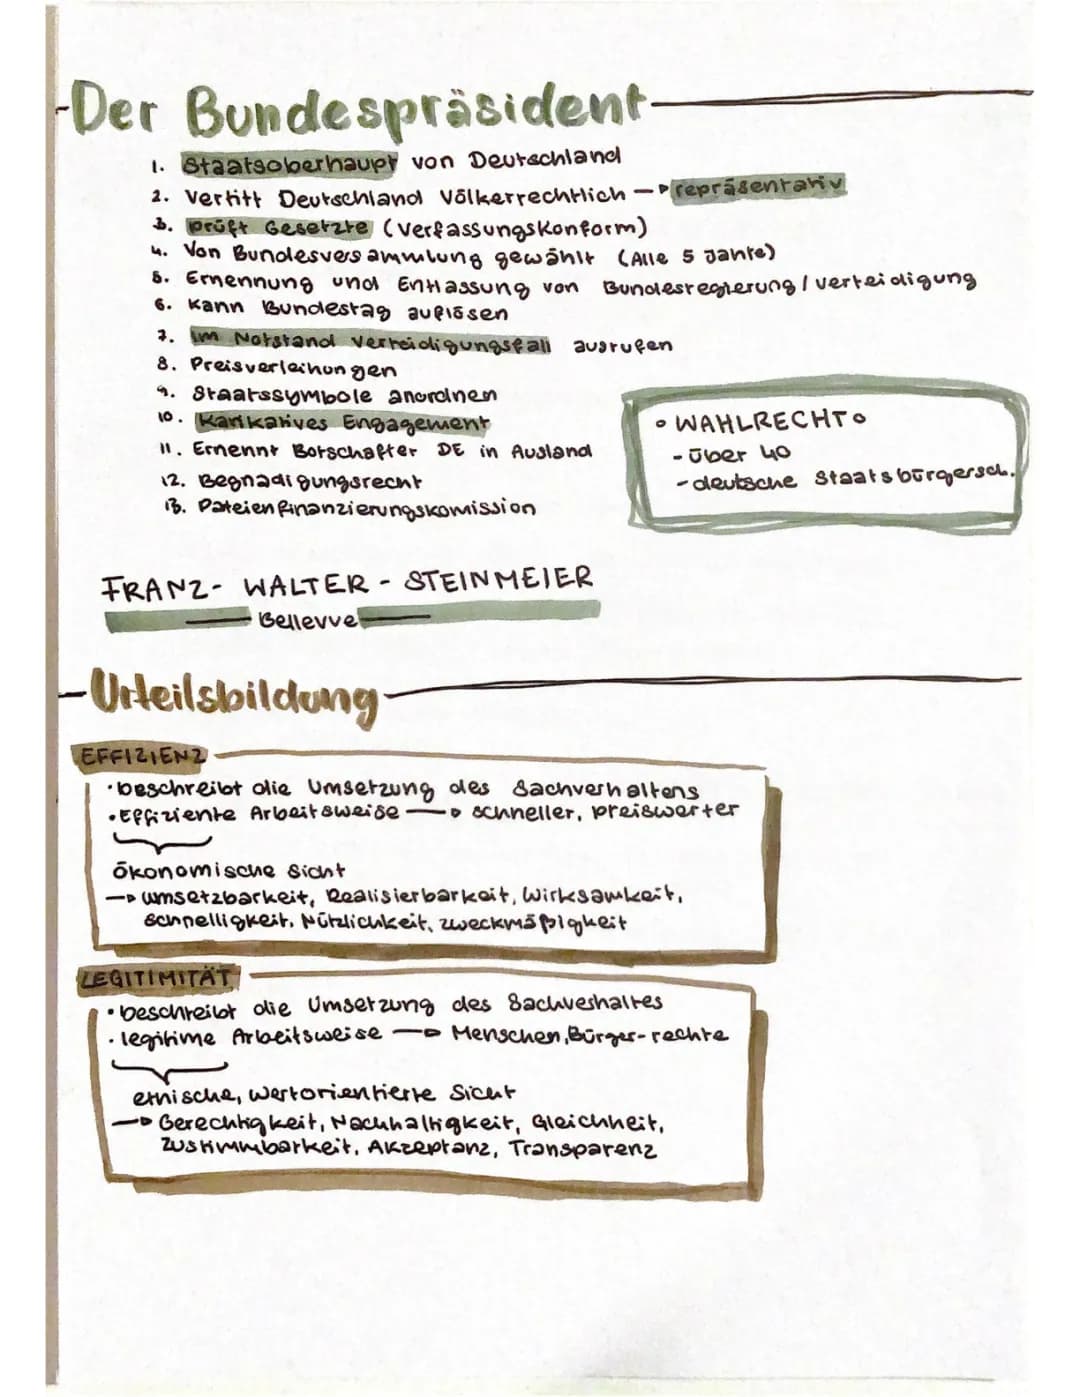 Der Bundespräsident
1. Staatsoberhaupt von Deutschland
2. Vertitt Deutschland Völkerrechtlich → repräsentativ
3. prüft Gesetzte (Verfassungskonform)
4. Von Bundesversammlung gewählt (Alle 5 Jahre)
5. Ernennung und Entlassung von Bundesregierung / verteidigung
6. Kann Bundestag auflösen
7. im Notstand Verteidigungsfall ausrufen
8. Preisverleihungen
9. Staatssymbole anordnen
10. Karikatives Engagement
11. Ernennt Botschafter DE in Ausland
12. Begnadigungsrecht
13. Pateienfinanzierungskomission
• WAHLRECHT •
- über 40
- deutsche Staatsbürgersch.
FRANZ - WALTER - STEINMEIER
Bellevve
Urteilsbildung
EFFIZIENZ
• beschreibt die Umsetzung des Sachverhaltens
• Effiziente Arbeitsweise → schneller, preiswerter
ökonomische Sicht
→ umsetzbarkeit, Realisierbarkeit, Wirksamkeit,
schnelligkeit, Nützlichkeit, zweckmäßigkeit
LEGITIMITÄT
• beschreibt die Umsetzung des Sachveshaltes
• legitime Arbeitsweise → Menschen, Bürger-rechte
ethische, wertorientierte Sicht
→ Gerechtigkeit, Nachhaltigkeit, Gleichheit,
Zustimmbarkeit, Akzeptanz, Transparenz